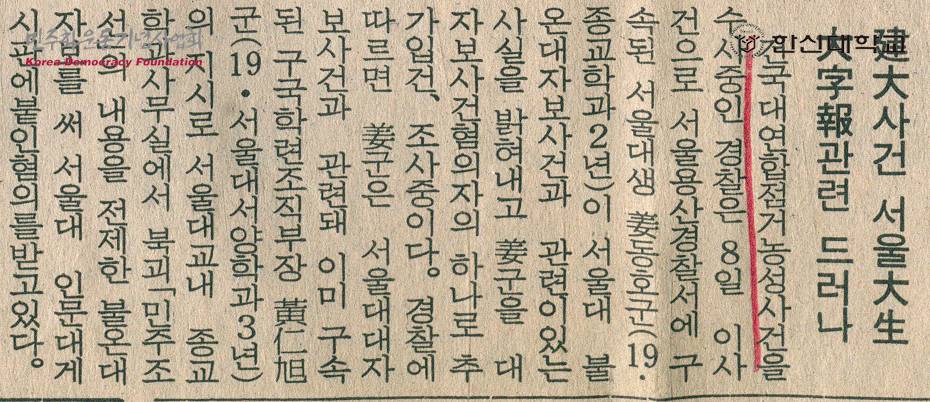 建大사건 서울大生
大字報관련 드러나
건국대연합점거농성사건을
수사중인 경찰은 8일 이사
건으로 서울용산경찰서에 구
속된 서울대생 姜동호군(19·
종교학과2년)이 서울대 불
온대자보사건과 관련이있는
사실을 밝혀내고 姜군을 대
자보사건혐의자의 하나로 추
가입건、조사중이다。 경찰에
따르면 姜군은 서울대대자
보사건과 관련돼 이미 구속
된 구국학련조직부장 黃仁旭
군(19·서울대서양학과3년)
의 지시로 서울대교내 종교
학과사무실에서 북괴「민주조
선」의 내용을 전제한 불온대
자보를 써 서울대 인문대게
시판에붙인혐의를받고있다。
한신대학교
민주화운동기념사업회
Korea Democracy Foundation